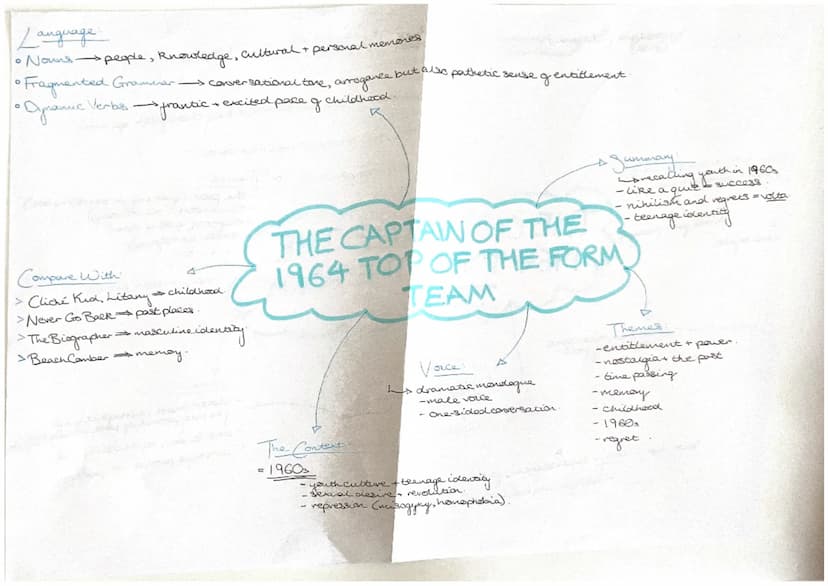 Language
• Nouns → people, knowledge, cultural + personal memories
• Fragmented Grammar → conversational tone, arrogance but also pathetic sense of entitlement
• Dynamic Verbs → frantic + excited pace of childhood.
Summary
↳ recalling youth in 1960s
- like a quiz = success.
- nihilism and regrets = volta
- teenage identity
THE CAPTAIN OF THE
1964 TOP OF THE FORM
TEAM
Compare With
> Cliché Kid, Litany → childhood
> Never Go Back → past places.
> The Biographer → masculine identity
> BeachComber → memory.
Themes
- entitlement + power.
- nostalgia + the past
- time passing
- memory
- childhood
- 1960s
- regret.
Voice:
↳ dramatic monologue
- male voice
- one-sided conversation
The Context
= 1960s
- youth culture + teenage identity
- sexual desire + revolution
- repression (misogyny, homophobia).